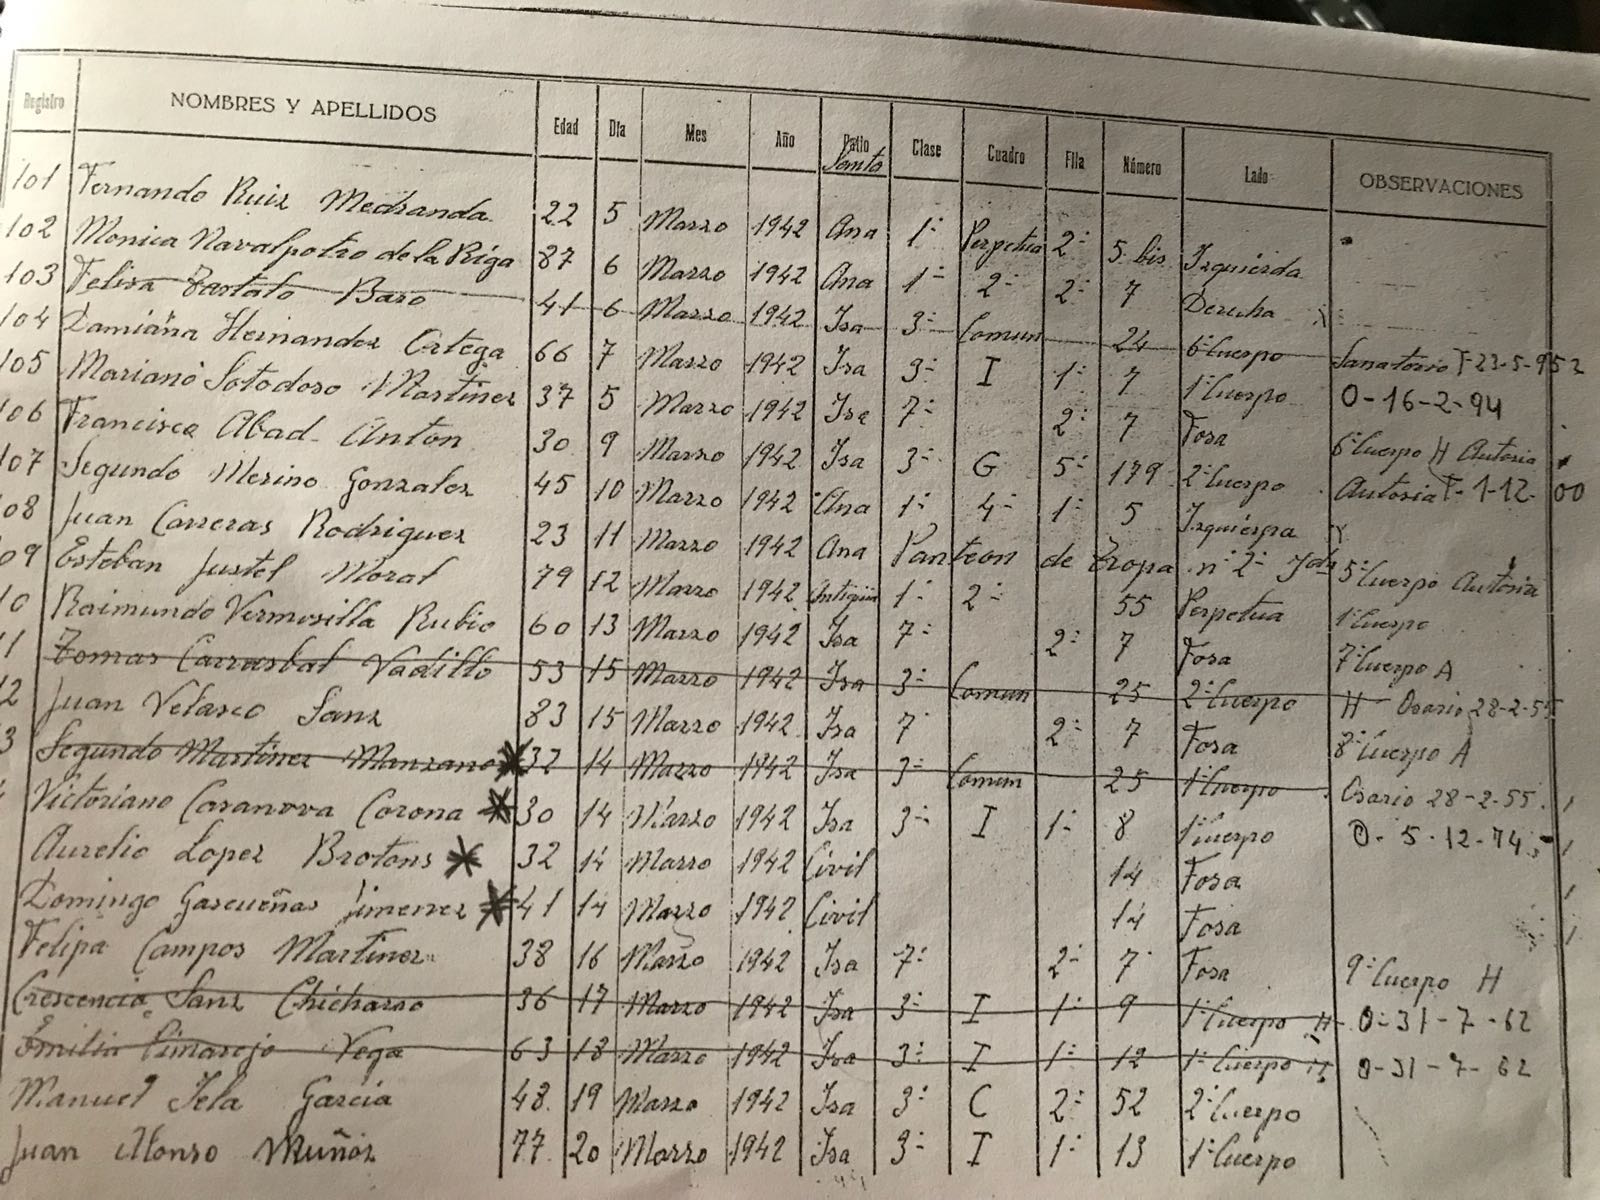 Registro NOMBRES Y APELLIDOS Edad Día Mes Año Patio Clase Cuadro Fila Número Lado OBSERVACIONES
Santa
101 Fernando Ruiz Medranda 22 5 Marzo 1942 Ana 1ª Perpetua 2ª 5 bis Izquierda
102 Monica Navalpotro de la Riga 87 6 Marzo 1942 Ana 1ª 2ª 2ª 7 Derecha
103 Felisa Baro 41 6 Marzo 1942 Isa 3ª Comun 24 6º Cuerpo Sanatorio T-23-5-952
104 Damiana Hernandez Ortega 66 7 Marzo 1942 Isa 3ª I 1ª 7 1º Cuerpo O-16-2-94
105 Mariano Sotodoso Martinez 37 5 Marzo 1942 Isa 7ª 2ª 7 Fosa 6º Cuerpo H Autoria
106 Francisca Abad Anton 30 9 Marzo 1942 Isa 3ª G 5ª 179 2º Cuerpo Autoria T-1-12-00
107 Segundo Merino Gonzalez 45 10 Marzo 1942 Ana 1ª 4ª 1ª 5 Izquierpa
08 Juan Carreras Rodriguez 23 11 Marzo 1942 Ana Panteon de Tropa nº 2º 5º Cuerpo Autoria
09 Esteban Justel Moral 79 12 Marzo 1942 Antigua 1ª 2ª 55 Perpetua 1º Cuerpo
10 Raimundo Vermosilla Rubio 60 13 Marzo 1942 Isa 7ª 2ª 7 Fosa 7º Cuerpo A
1 Tomas Carrasbal Vadillo 53 15 Marzo 1942 Isa 3ª Comun 25 2º Cuerpo H Osario 28-2-55
2 Juan Velasco Sanz 83 15 Marzo 1942 Isa 7ª 2ª 7 Fosa 8º Cuerpo A
3 Segundo Martinez Manzano * 32 14 Marzo 1942 Isa 3ª Comun 25 1º Cuerpo Osario 28-2-55
Victoriano Casanova Corona * 30 14 Marzo 1942 Isa 3ª I 1ª 8 1º Cuerpo O-5-12-74
Aurelio Lopez Brotons * 32 14 Marzo 1942 Civil 14 Fosa
Domingo Gascueñas Jimenez * 41 14 Marzo 1942 Civil 14 Fosa
Felipa Campos Martinez 38 16 Marzo 1942 Isa 7ª 2ª 7 Fosa 9º Cuerpo H
Crescencia Sanz Chicharro 36 17 Marzo 1942 Isa 3ª I 1ª 9 1º Cuerpo H O-31-7-62
Emilia Cimarejo Vega 63 18 Marzo 1942 Isa 3ª I 1ª 12 1º Cuerpo H O-31-7-62
Manuel Tela Garcia 48 19 Marzo 1942 Isa 3ª C 2ª 52 2º Cuerpo
Juan Alonso Muñoz 77 20 Marzo 1942 Isa 3ª I 1ª 13 1º Cuerpo